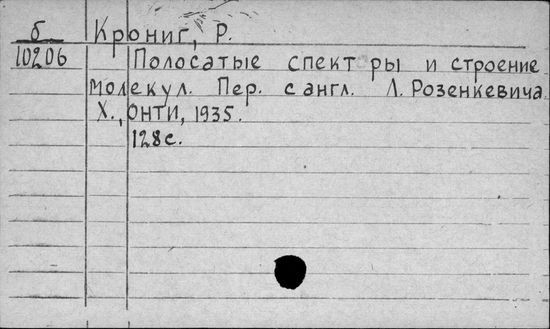 б Крониг, Р.
10206 Полосатые спектры и строение
молекул. Пер. с англ. Л. Розенкевича.
Х., ОНТИ, 1935.
128с.